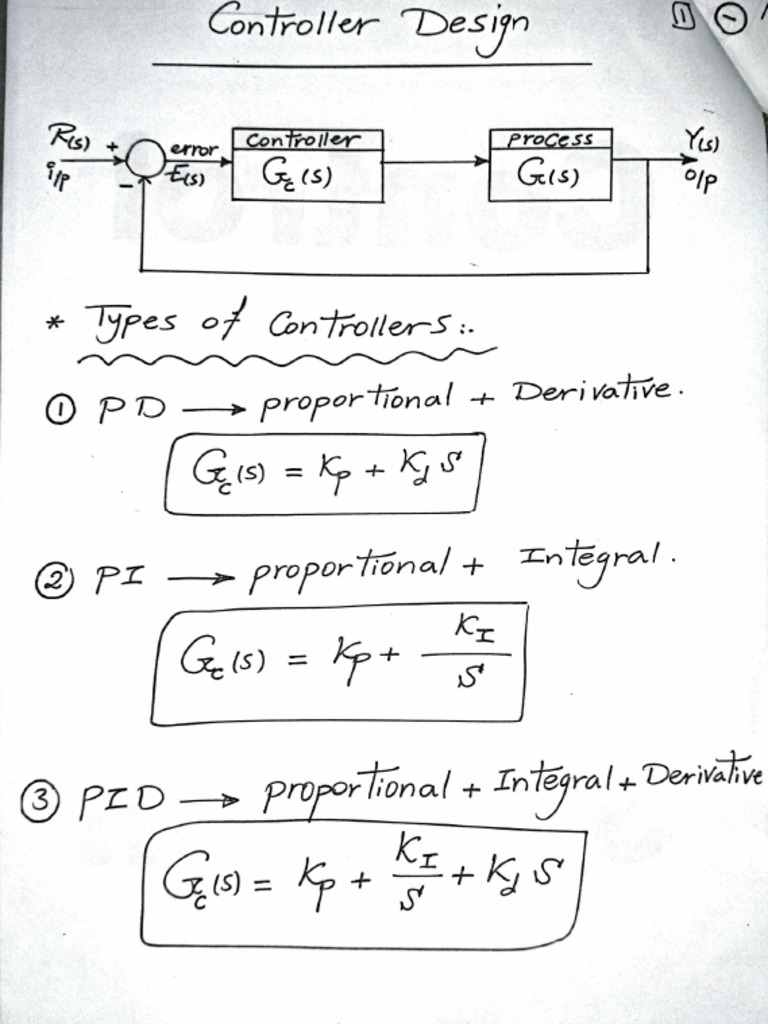 Controller Design
R(s) + error controller process Y(s)
i/p - E(s) Gc(s) G(s) o/p
* Types of Controllers:.
① PD → proportional + Derivative.
Gc(s) = Kp + Kd S
② PI → proportional + Integral.
Gc(s) = Kp + KI / S
③ PID → proportional + Integral + Derivative
Gc(s) = Kp + KI / S + Kd S